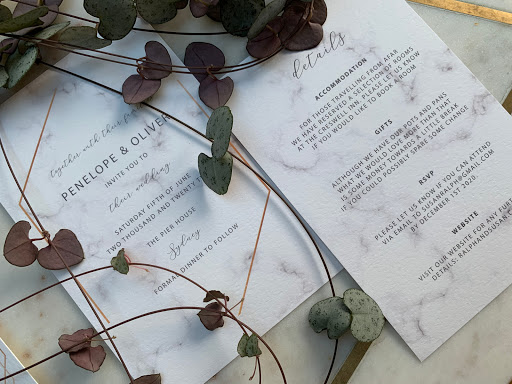 together with their
PENELOPE & OLIVER
INVITE YOU TO
their wedding
SATURDAY FIFTH OF JUNE
TWO THOUSAND AND TWENTY
THE PIER HOUSE
Sydney
FORMAL DINNER TO FOLLOW
details
ACCOMMODATION
FOR THOSE TRAVELLING FROM AFAR
WE HAVE RESERVED A SELECTION OF ROOMS
AT THE CRESWELL INN. PLEASE LET US KNOW
IF YOU WOULD LIKE TO BOOK A ROOM
GIFTS
ALTHOUGH WE HAVE OUR POTS AND PANS
WHAT WE WOULD LOVE MORE THAN THAT
IS SOME MONEY TOWARDS A LITTLE BREAK
IF YOU COULD POSSIBLY SPARE SOME CHANGE
RSVP
PLEASE LET US KNOW IF YOU CAN ATTEND
VIA EMAIL TO SUSANRALPH@GMAIL.COM
BY DECEMBER 1ST 2020
WEBSITE
VISIT OUR WEBSITE FOR ANY
DETAILS: RALPHANDSUSAN